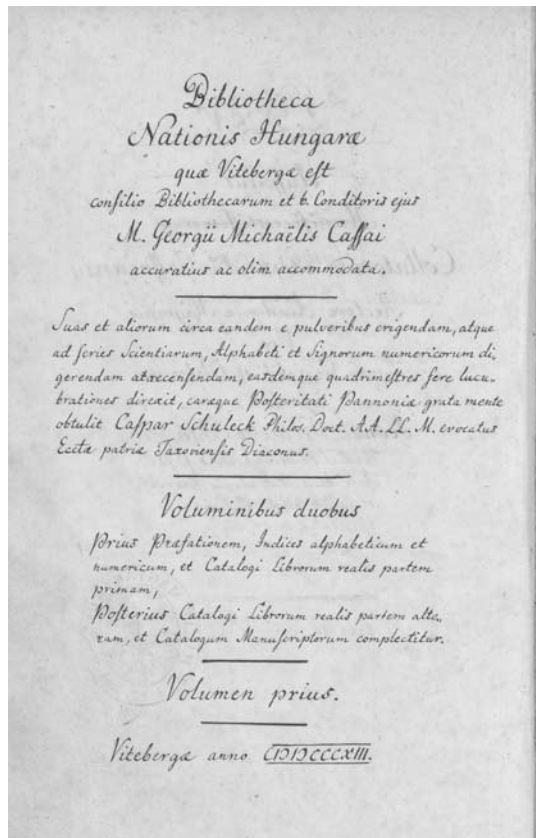 Bibliotheca
Nationis Hungaræ
quæ Vitebergæ eſt
conſilio Bibliothecarum et b. Conditoris ejus
M. Georgii Michaëlis Caſſai
accuratius ac olim accommodata.
Suas et aliorum circa eandem e pulveribus erigendam, atque
ad ſeries Scientiarum, Alphabeti et Signorum numericorum di,
gerendam atq recenſendam, easdemque quadrimeſtres fere lucu,
brationes direxit, caræque Poſteritati Pannoniæ grata mente
obtulit Caſpar Schuleck Philos. Doct. AA. LL. M. evocatus
Eccłæ patriæ Taxovienſis Diaconus.
Voluminibus duobus
Prius Præfationem, Indices alphabeticum et
numericum, et Catalogi Librorum realis partem
primam,
Poſterius Catalogi Librorum realis partem alte,
ram, et Catalogum Manuſcriptorum complectitur.
Volumen prius.
Vitebergæ anno CIↃIↃCCCXIII.